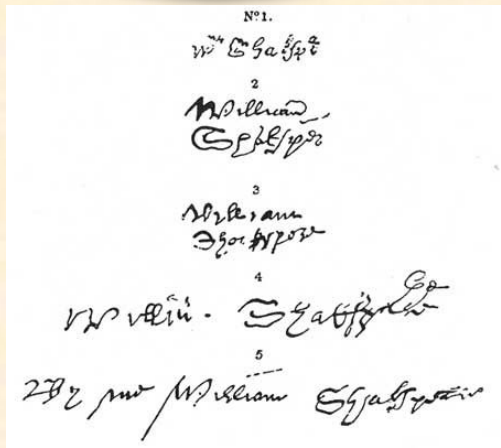 Nº1.
Wm Shakspē
2
William
Shakspēr
3
William
Shakspere
4
Willin. Shakspere
5
By me William Shakspeare